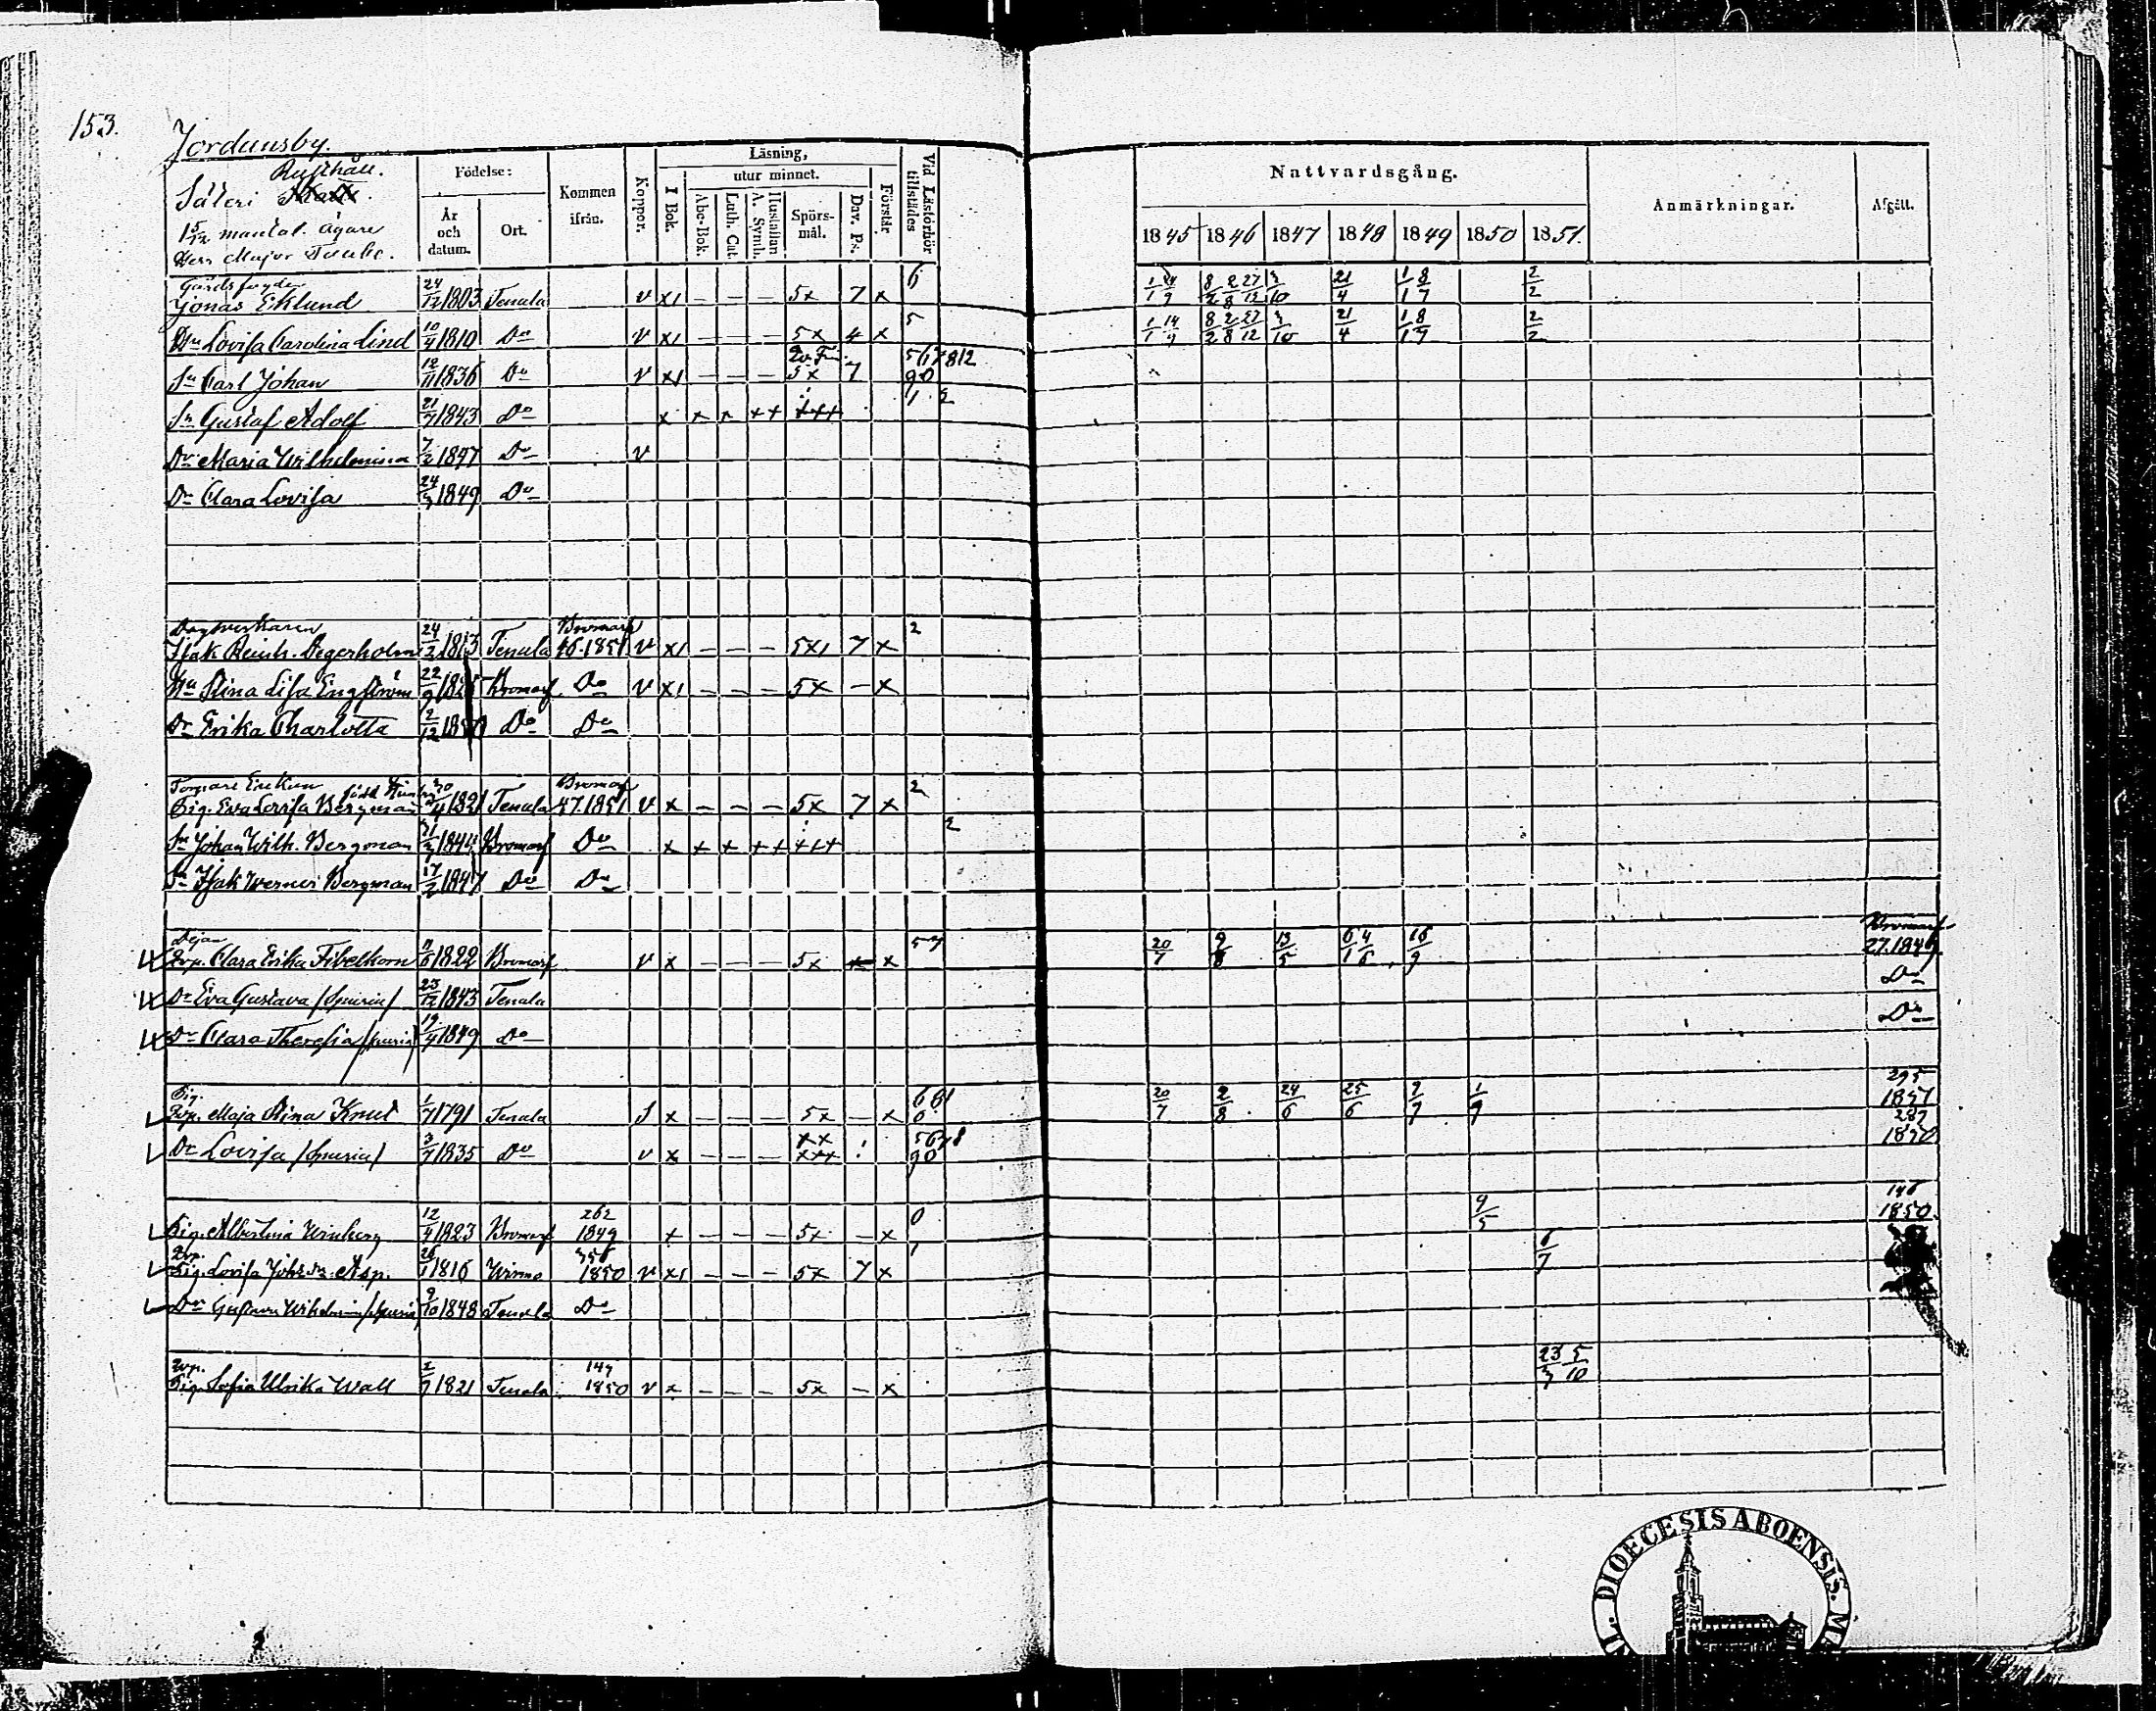 153.
Jordansby.
Rusthåll.
Säteri
1 5/12 mantal. Ägare
Herr Major
Födelse:
År och datum.
Ort.
Kommen ifrån.
Koppor.
Läsning,
I Bok.
utur minnet.
Abc-Bok.
Luth. Cat.
Hustaflan A. Symb.
Spörsmål.
Dav. Ps.
Förstår
Vid Läsförhör tillstädes
Nattvardsgång.
1845 1846 1847 1848 1849 1850 1851.
Anmärkningar.
Afgått.
Gårdsfogden
Jonas Eklund 24/12 1803 Tenala v x1 – – – 5x 7 x 6 8/2 2/8 27/12 3/10 21/4 1/1 8/7 2/2
Hu Lovisa Carolina Lind 10/4 1810 Do v x1 – – – 5x 4 x 5 1/1 14/9 8/2 2/8 27/12 3/10 21/4 1/1 8/7 2/2
Sn Carl Johan 12/11 1836 Do v x1 – – – 5x 7 567812 90
Sn Gustaf Adolf 21/7 1843 Do x x x xx +++ 1 2
Dr Maria Wilhelmina 7/2 1847 Do v
Dr Clara Lovisa 24/3 1849 Do
Dagsverkaren Bromarf
Isak Reinh. Degerholm 24/2 1813 Tenala 46.1851 v x1 – – – 5x1 7 x 2
Hu Stina Lisa Engström 22/9 Bromarf Do v x1 – – – 5x – x
Dr Erika Charlotta 2/12 Do Do
Torpare Enkan Bromarf
Pig. Eva Lovisa Bergman 1821 Tenala 47.1851 v x – – – 5x 7 x 2
Sn Johan Wilh. Bergman 1844 Bromarf Do x x x xx +++ 2
Sn Isak Werner Bergman 17/2 1847 Do Do
Dejan Bromarf
Clara Erika Fibelkorn 1822 Bromarf v x – – – 5x x 57 20/7 9/8 13/5 6/1 4/6 16/9 27.1849
Dr Eva Gustava /spuria/ 23/12 1843 Tenala Do
Dr Clara Theresia /spuria/ 19/4 1849 Do Do
Pig. 295
Maja Stina Knut 1/7 1791 Tenala S x – – – 5x – x 20/7 2/8 24/6 25/6 9/7 1/9 1851
Dr Lovisa /spuria/ 3/7 1835 Do v x – – – 5678 90 287 1850
Pig. Albertina Winberg 12/4 1823 Bromarf 262 1849 x – – – 5x – x 0 9/5 146 1850.
Pig. Lovisa Johsdr. Asp. 26/1 1816 Wirmo 356 1850 v x1 – – – 5x 7 x 1 6/7
Dr Gustava Wilhelmin /spuria/ 9/10 1848 Tenala Do
Pig. Sofia Ulrika Wall 2/7 1821 Tenala 147 1850 v x – – – 5x – x 5/10
DIOECESIS ABOENSIS.